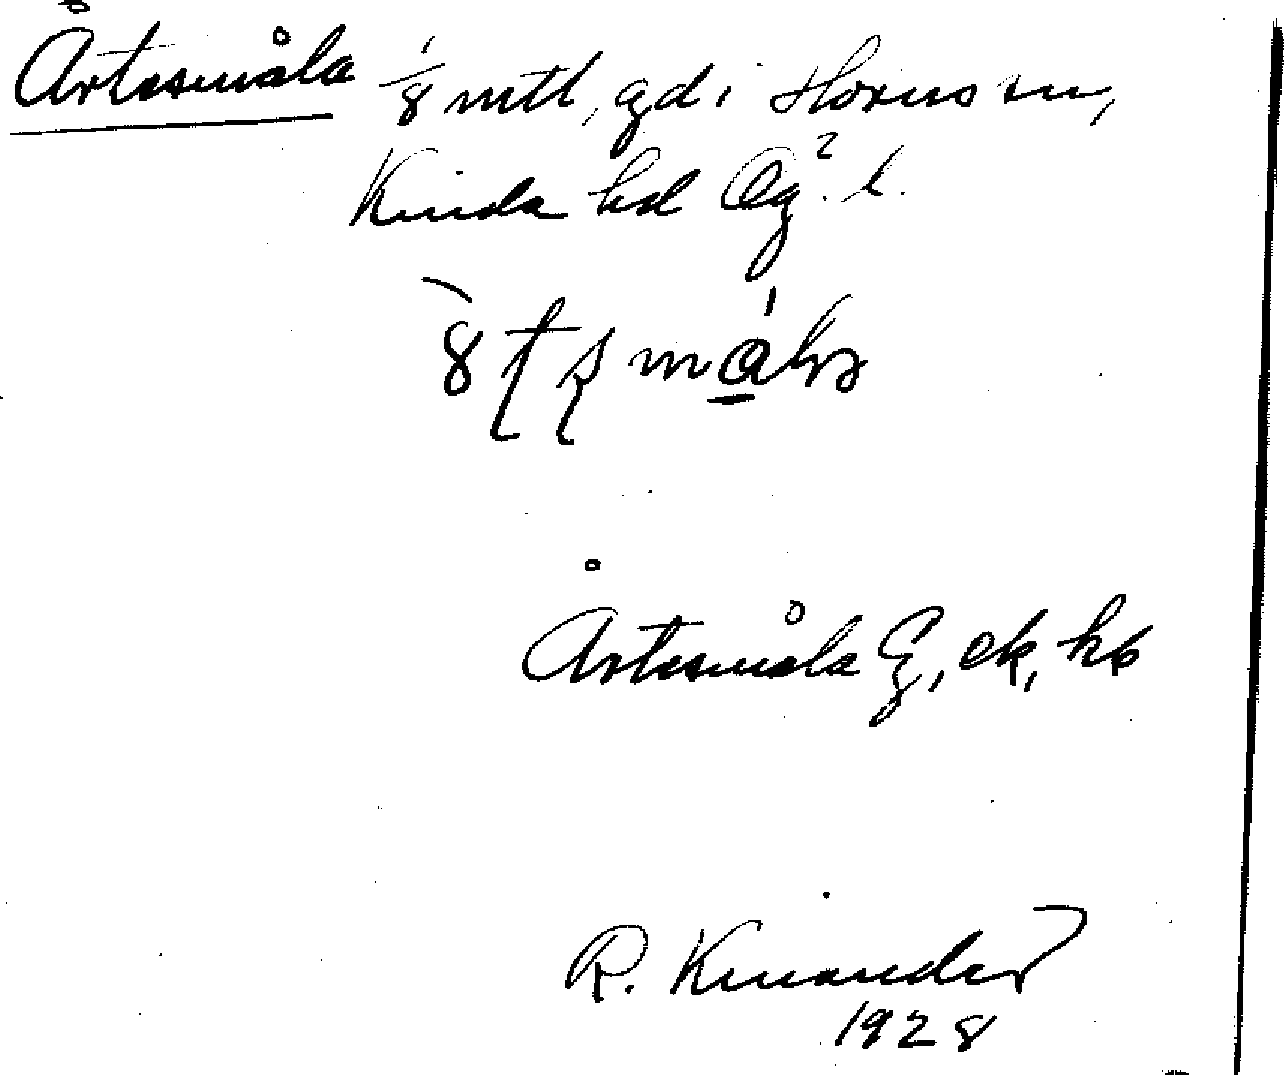 Årtesmåla 1/8 mtl, gd i Horns sn,
Kinda hd Ög. l.
Årtesmåla G, ek, kb
R. Kinander
1928